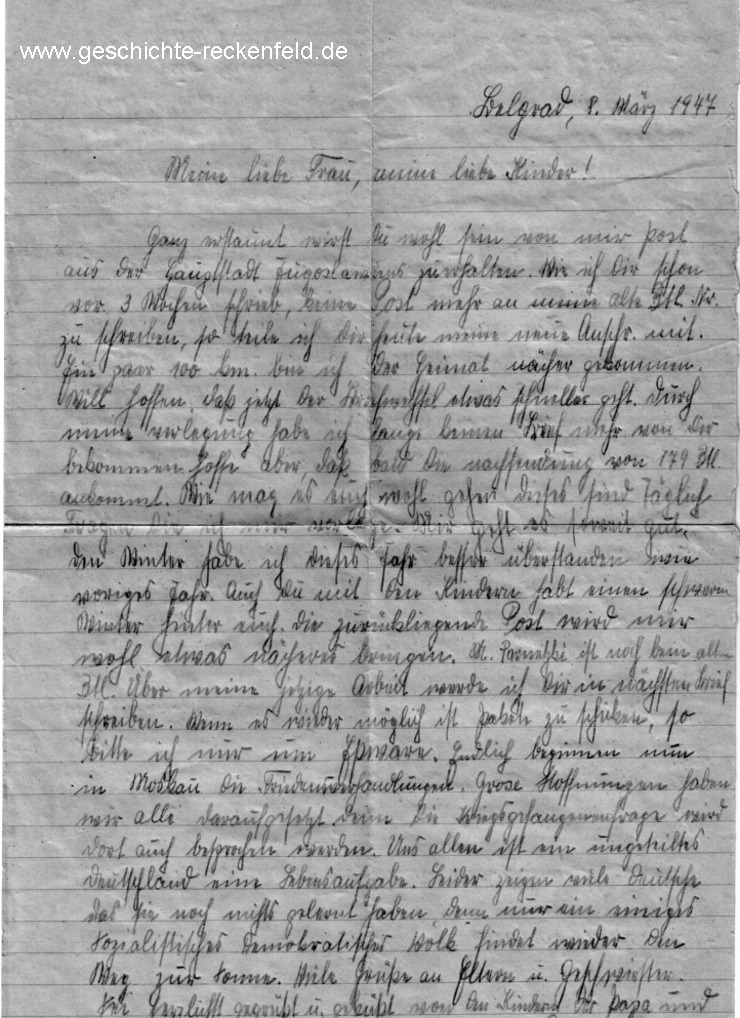 www.geschichte-reckenfeld.de
Belgrad, 8. März 1947
Meine liebe Frau, meine liebe Kinder!
Ganz erstaunt wirst Du wohl sein von mir Post
aus der Hauptstadt Jugoslawiens zuerhalten. Wie ich Dir schon
vor 3 Wochen schrieb, keine Post mehr an meine alte Btl. Nr.
zu schreiben, so teile ich Dir heute meine neue Anschr. mit.
Ein paar 100 km. bin ich der Heimat nächer gekommen.
Will hoffen, daß jetzt der Briefwechsel etwas schneller geht. Durch
meine verlegung habe ich lange keinen Brief mehr von Dir
bekommen. Hoffe aber, daß bald die nachsendung von 179 Btl.
ankommt. Wie mag es euch wohl gehen dieses sind Täglich
Fragen die ich mir vorlege. Mir geht es soweit gut.
den Winter habe ich dieses Jahr besser überstanden wie
voriges Jahr. Auch Du mit den Kindern habt einen schweren
Winter hinter euch. die zurückliegende Post wird mir
wohl etwas näheres bringen. M. Parnetzki ist noch beim alten
Btl. Über meine jetzige Arbeit werde ich Dir in nächsten Brief
schreiben. Wenn es wieder möglich ist Pakete zu schicken, so
bitte ich nur um Eßware. Endlich beginnen nun
in Moskau die Friedensverhandlungen. Grose Hoffnungen haben
wir alle daraufgesetzt denn die Kriegsgefangenenfrage wird
dort auch besprochen werden. Uns allen ist ein ungeteiltes
Deutschland eine Lebensaufgabe. Leider zeigen viele Deutsche
das sie noch nichts gelernt haben denn nur ein einiges
Sozialistisches Demokratisches Volk findet wieder den
Weg zur Sonne. Viele Grüße an Eltern u. Geschwister.
Sei herzlichst gegrüßt u. geküßt von den Kindern Ihr Papa und